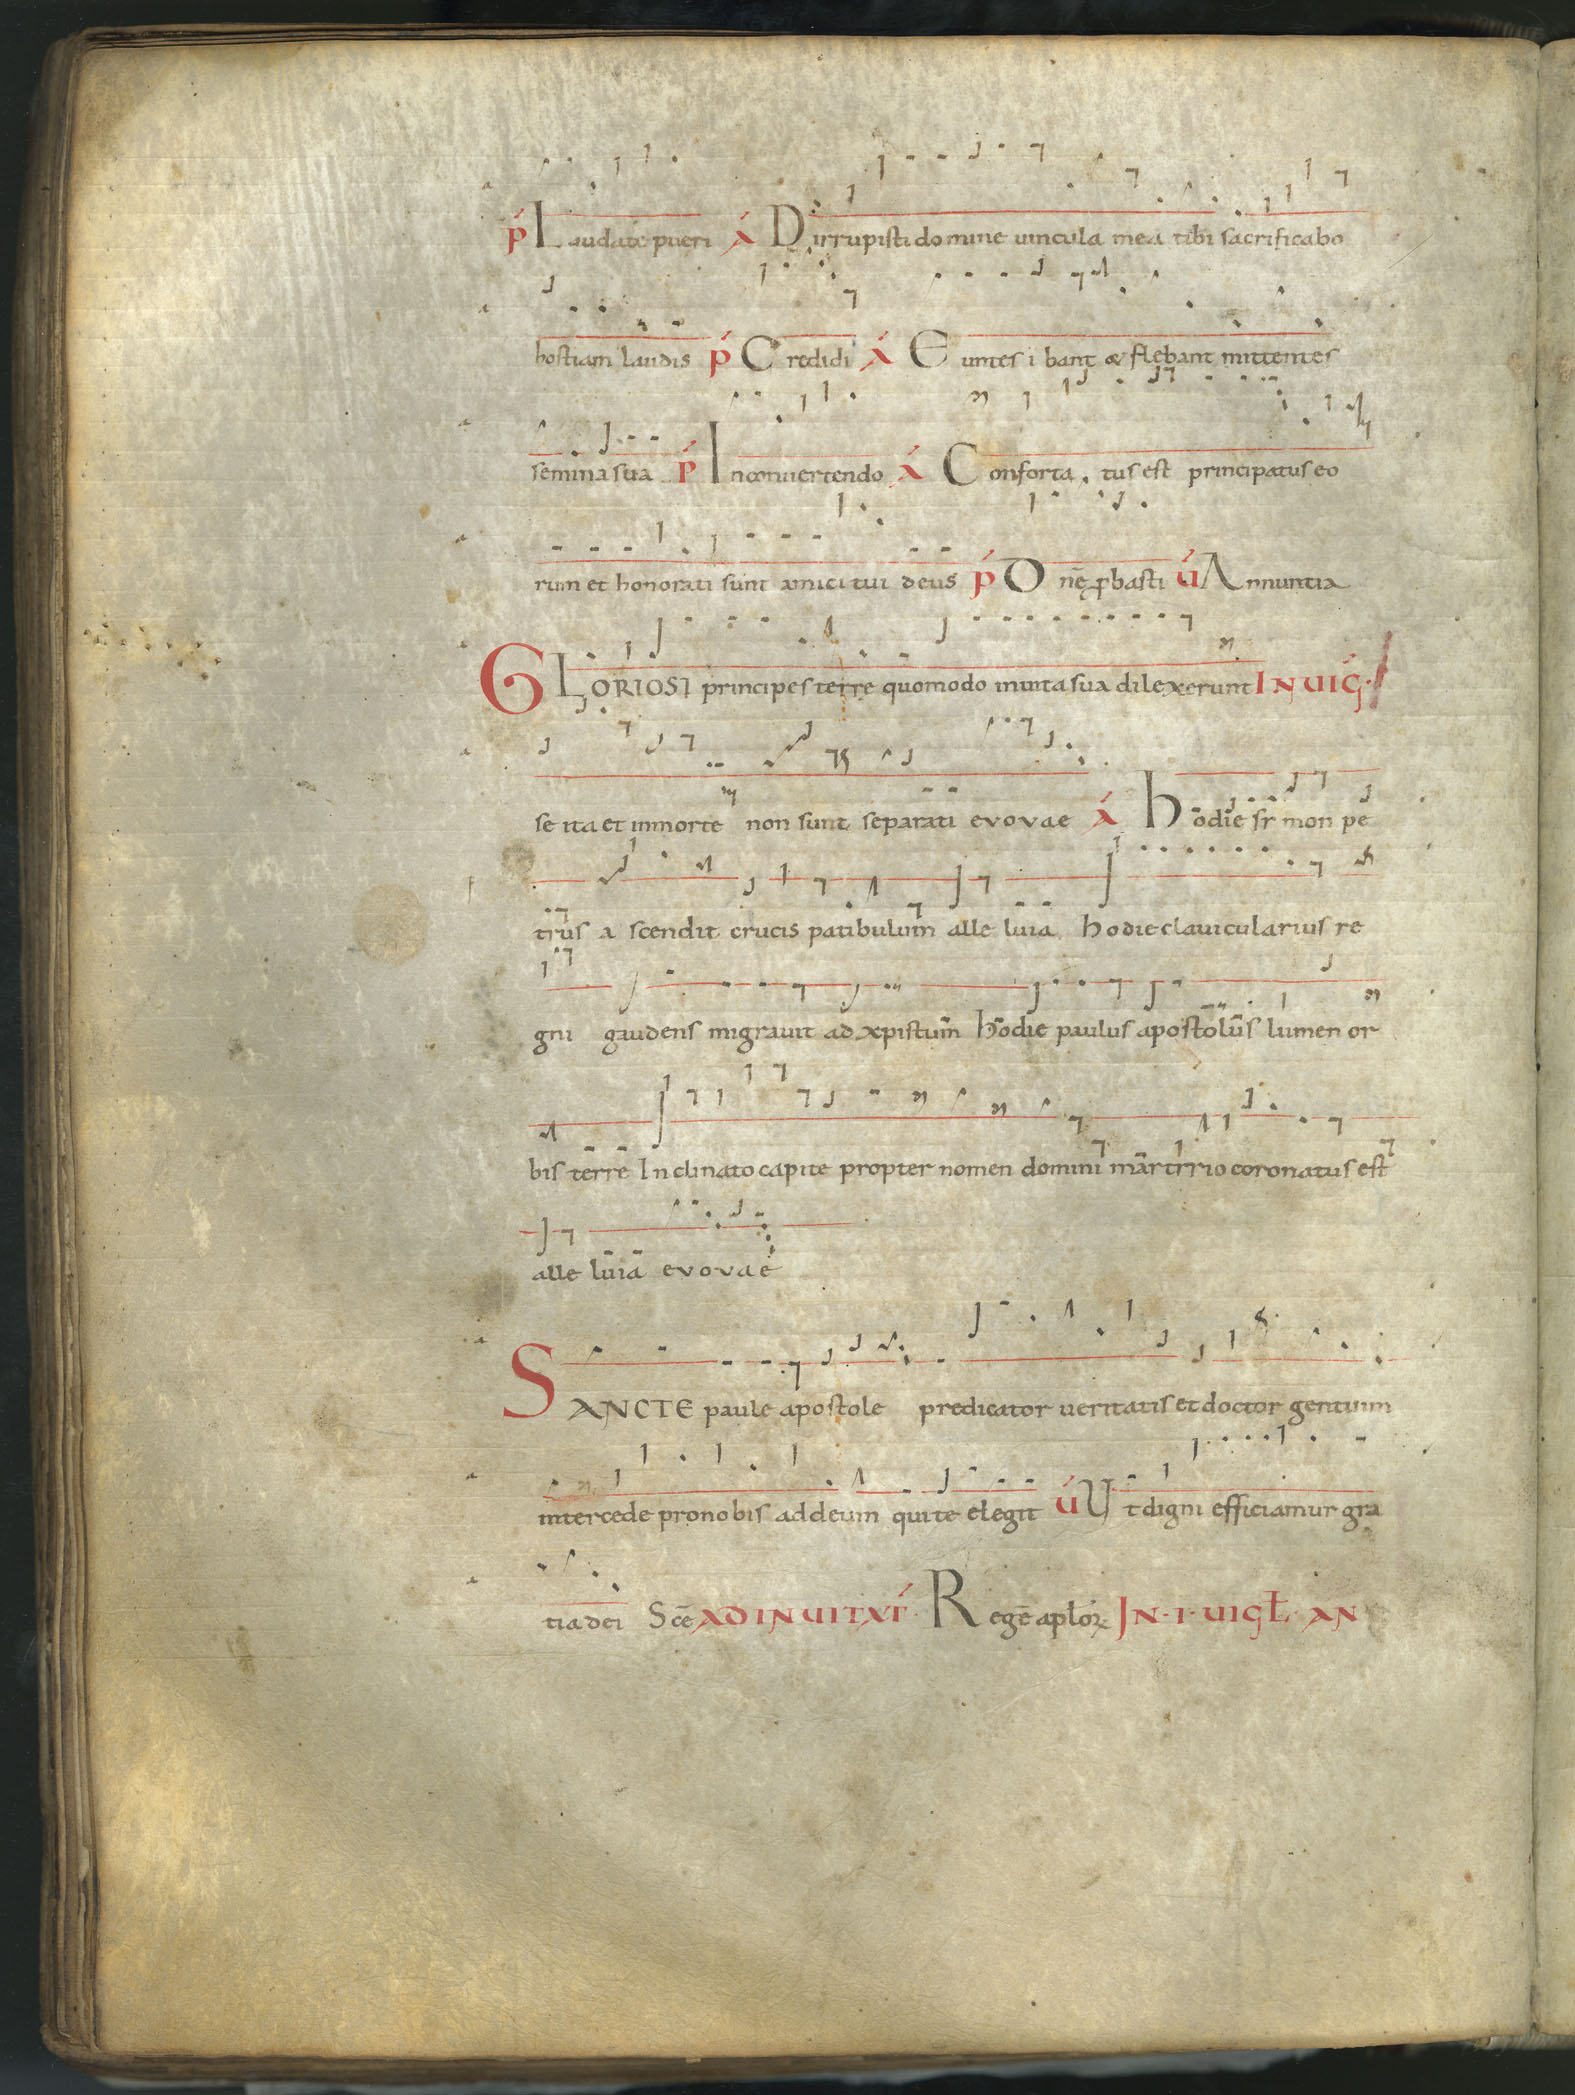 p Laudate pueri A Dirrupisti domine uincula mea tibi sacrificabo
hostiam laudis p Credidi A Euntes i bant & flebant mittentes
semina sua p Inconuertendo A Conforta tus est principatus eo
rum et honorati sunt amici tui deus p Dnē pbasti ú Annuntia
GLORIOSI principes terre quomodo inuita sua dilexerunt IN UIG
se ita et inmorte non sunt separati evovae A hodie sr̄ mon pe
trus a scendit crucis patibulum alle luia hodie clauicularius re
gni gaudens migrauit ad xpistum hodie paulus apostolus lumen or
bis terre Inclinato capite propter nomen domini martirio coronatus est
alle luia evovae
SANCTE paule apostole predicator ueritatis et doctor gentium
intercede pronobis addeum qui te elegit ú Ut digni efficiamur gra
tia dei Scē AD INUITAT Regē aptoꝝ IN · I · UIGŁ · AN